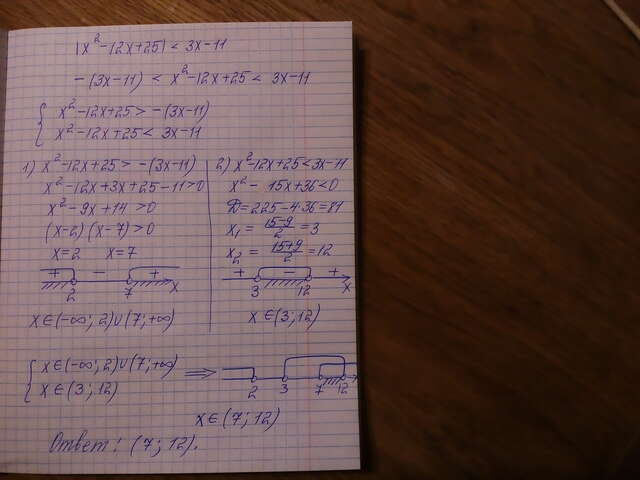 |x²-12x+25| < 3x-11
-(3x-11) < x²-12x+25 < 3x-11
x²-12x+25 > -(3x-11)
x²-12x+25 < 3x-11
1) x²-12x+25 > -(3x-11)
x²-12x+3x+25-11>0
x²-9x+14 >0
(x-2)(x-7)>0
x=2 x=7
+ - +
2 7 x
x∈(-∞; 2)∪(7; +∞)
2) x²-12x+25<3x-11
x²- 15x+36<0
D=225-4·36=81
x₁ = (15-9)/2 = 3
x₂ = (15+9)/2 = 12
+ - +
3 12 x
x∈(3; 12)
x∈(-∞; 2)∪(7; +∞)
x∈(3; 12)
⇒
2 3 7 12
x∈(7; 12)
Ответ: (7; 12).